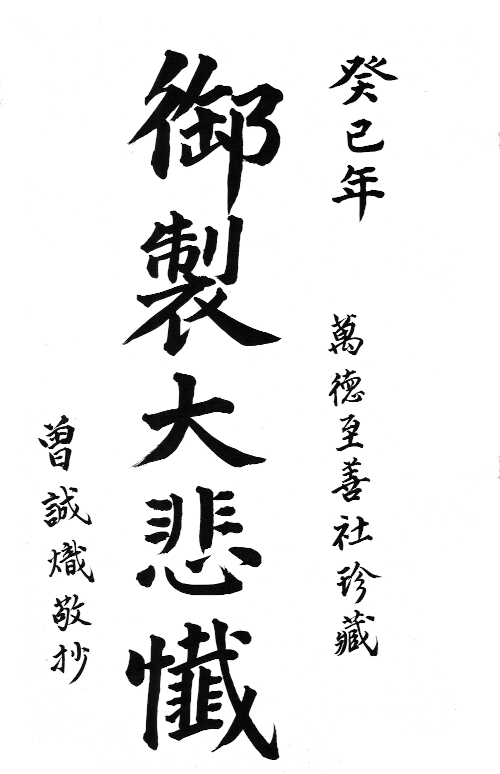 癸巳年
萬德至善社珍藏
御製大悲懺
曾誠熾敬抄